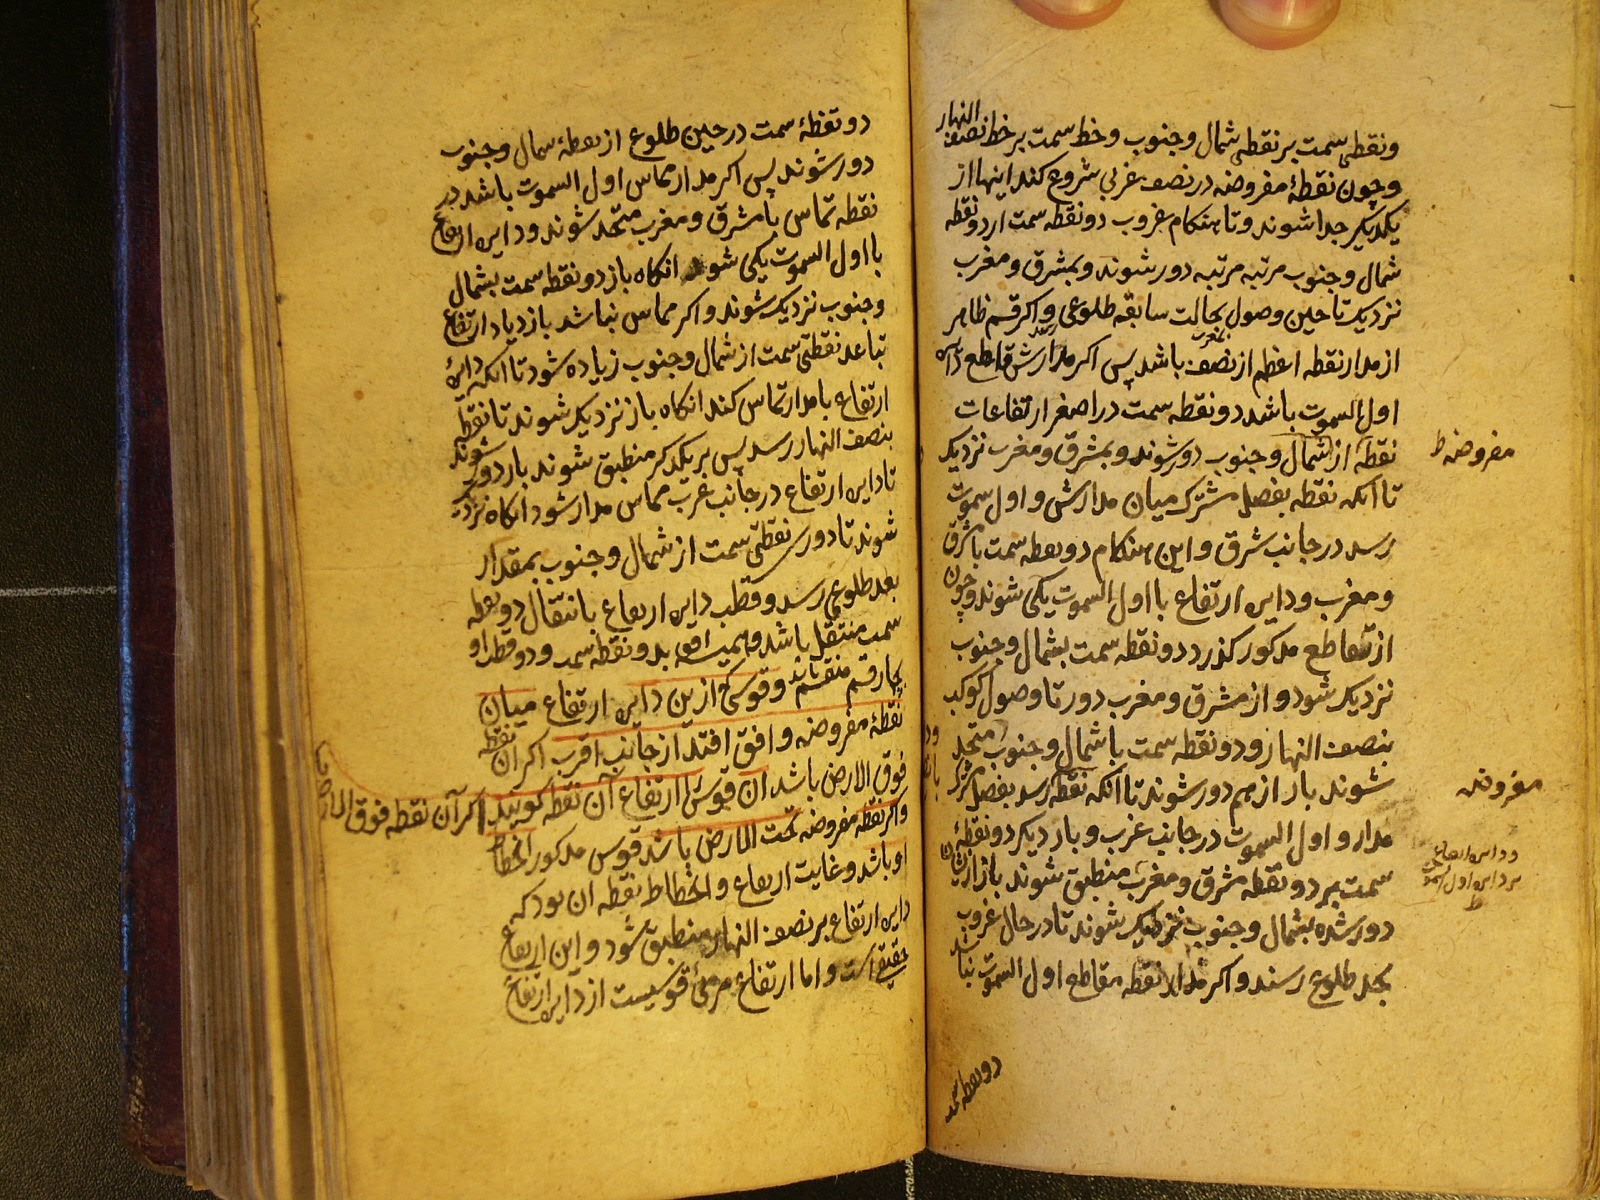 ونقطتی سمت بر نقطتی شمال و جنوب و خط سمت بر خط نصف النهار
و چون نقطهٔ مفروضه در نصف غربی شروع کند اینها از
یکدیگر جدا شوند و تا هنکام غروب دو نقطه سمت از دو نقطه
شمال و جنوب مرتبه مرتبه دور شوند و بمشرق و مغرب
نزدیک تا حین وصول بحالت سابقه طلوعی و اکر قسم ظاهر
از مدار نقطه اعظم از نصف باشد پس اکر مدارش قاطع دایره
اول السموت باشد دو نقطه سمت در اصغر ارتفاعات
نقطه از شمال و جنوب دور شوند و بمشرق و مغرب نزدیک
تا آنکه نقطه بفصل مشترک میان مدارش و اول سموت
رسد در جانب شرق و این هنکام دو نقطه سمت با مشرق
و مغرب و دایره ارتفاع با اول السموت یکی شوند و چون
از تقاطع مذکور کذرد دو نقطه سمت بشمال و جنوب
نزدیک شود و از مشرق و مغرب دور تا وصول کوکب
بنصف النهار و دو نقطه سمت با شمال و جنوب متحد
شوند باز از هم دور شوند تا آنکه نقطه رسد بفصل مشترک
مدار و اول السموت در جانب غرب و بار دیکر دو نقطهٔ
سمت بر دو نقطه مشرق و مغرب منطبق شوند باز ازیشان
دور شده بشمال و جنوب نزدیک شوند تا در حال غروب
بحد طلوع رسند و اکر مدار نقطه مقاطع اول السموت نباشد
مفروضه ط
مفروضه
و دایره ارتفاع
بر دایره اول السموت
ط
دو نقطه سمت
دو نقطهٔ سمت در حین طلوع از نقطهٔ شمال و جنوب
دور شوند پس اکر مدار مماس اول السموت باشد در
نقطه تماس با مشرق و مغرب متحد شوند و دایره ارتفاع
با اول السموت یکی شود انکاه باز دو نقطه سمت بشمال
و جنوب نزدیک شوند و اکر مماس نباشد بازدیاد ارتفاع
تباعد نقطتی سمت از شمال و جنوب زیاده شود تا آنکه دایرهٔ
ارتفاع با مدار تماس کند انکاه باز نزدیک شوند تا نقطه
بنصف النهار رسد پس بر یکدیکر منطبق شوند باز دور شوند
تا دایره ارتفاع در جانب غرب مماس مدار شود انکاه نزدیک
شوند تا دوری نقطتی سمت از شمال و جنوب بمقدار
بعد طلوعی رسد و قطب دایره ارتفاع بانتقال دو نقطه
سمت منتقل باشد و همیشه افق بدو نقطه سمت و دو قطر او
چهار قسم منقسم باشد و قوسی که از این دایره ارتفاع میان
نقطهٔ مفروضه و افق افتد از جانب اقرب اکر آن نقطه
فوق الارض باشد آن قوس را ارتفاع آن نقطه کویند اکر آن نقطه فوق الارض
و اکر نقطه مفروضه تحت الارض باشد قوس مذکور انحطاط
او باشد و غایت ارتفاع و انحطاط نقطه آن بود که
دایره ارتفاع بر نصف النهار منطبق شود و این ارتفاع
حقیقی است و اما ارتفاع مرئی قوسیست از دایره ارتفاع